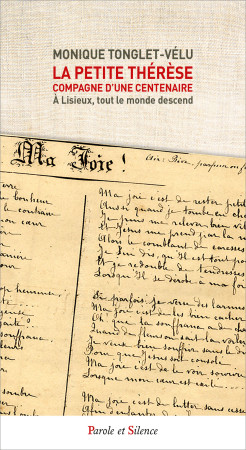 MONIQUE TONGLET-VÉLU
LA PETITE THÉRÈSE
COMPAGNE D'UNE CENTENAIRE
À Lisieux, tout le monde descend
Ma Joie !
Air :
bonheur
Ma joie, c'est de rester petite
Aussi quand je tombe en chemin
Je puis me relever bien vite
Et Jésus me prend par la main
Alors le comblant de caresses
Je Lui dis qu'Il est tout pour moi
Et je redouble de tendresses
Lorsqu'Il se dérobe à ma foi
Si parfois je verse des larmes
Ma joie, c'est de les bien cacher
Oh ! que la souffrance a de charmes
Quand de fleurs on sait la voiler
Je veux bien souffrir sans le dire
Pour que Jésus soit consolé
Ma joie, c'est de le voir sourire
Lorsque mon cœur est exilé
Ma joie, c'est de lutter sans cesse
Parole et Silence